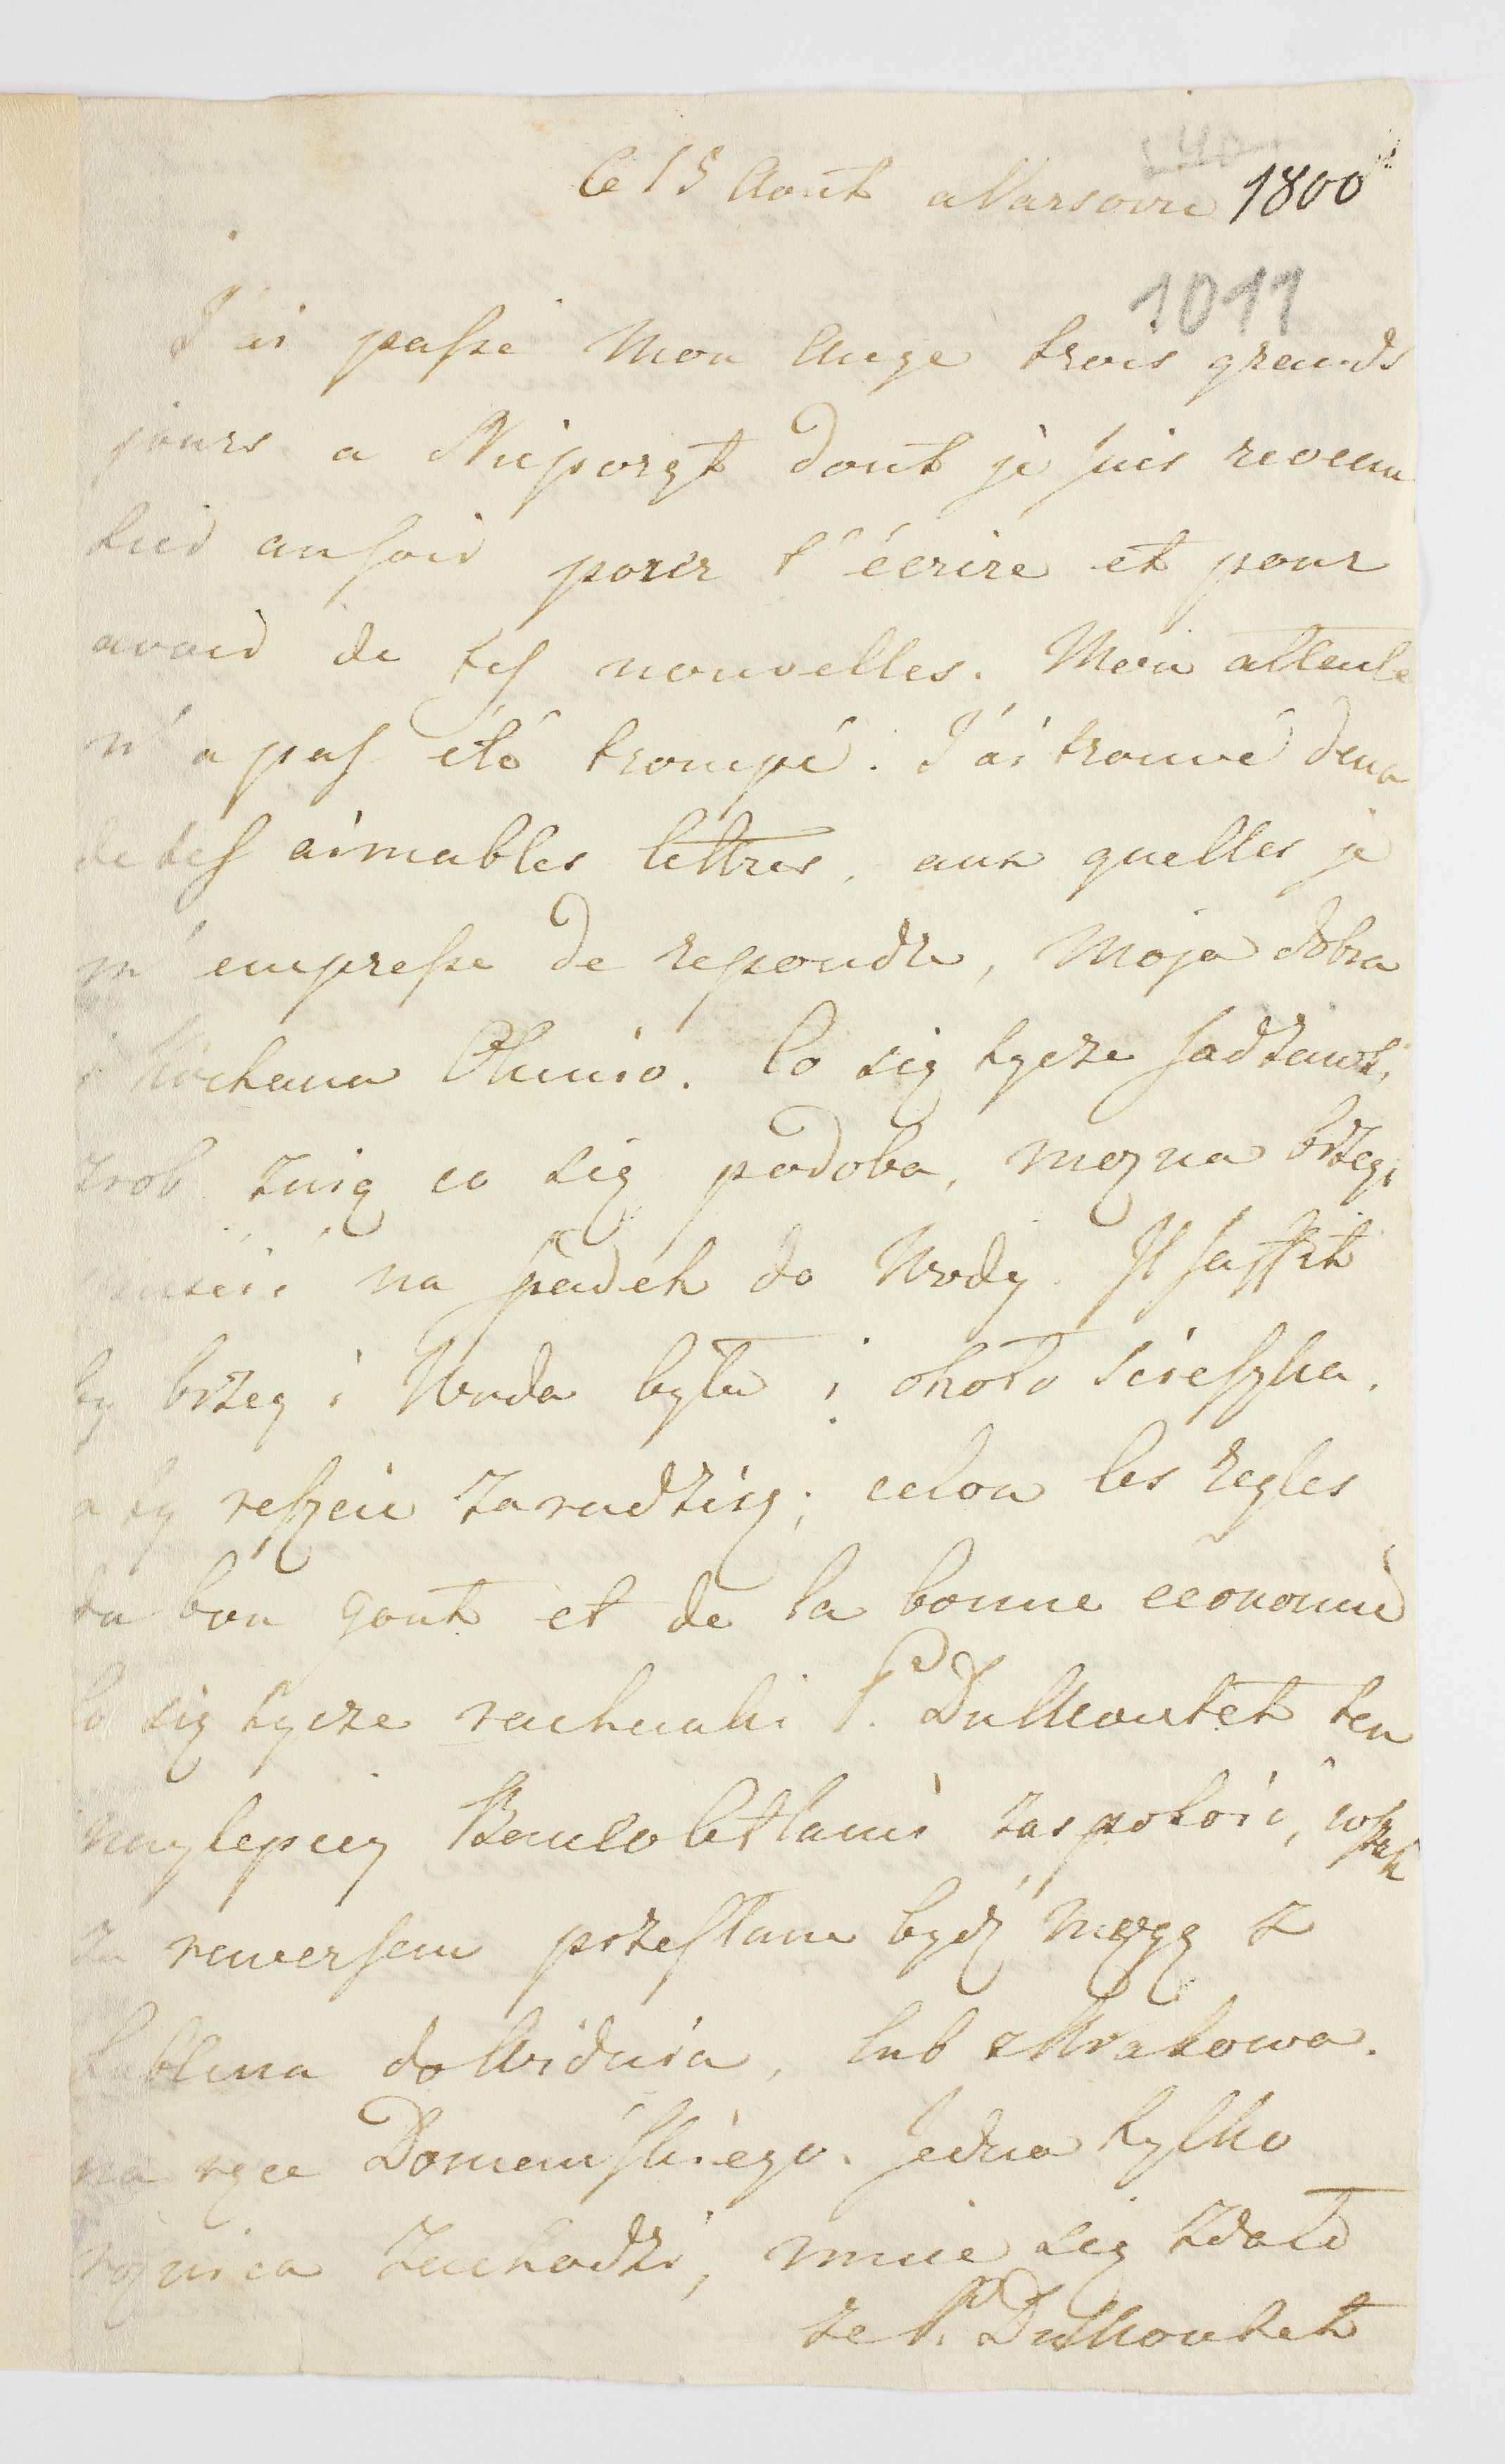 Ce 15 Aout a Varsovie 1800
1011
J'ai passé Mon Ange trois grands
jours a Nieporęt dont je suis revenu
hier au soir pour t'écrire et pour
avoir de tes nouvelles. Mon attente
n'a pas été trompé. J'ai trouvé deux
de tes aimables lettres, aux quelles je
m'empresse de repondre, Moja dobra
i Kochana Olunio. Co się tycze sadzawki,
zrob z nią co się podoba, mozna brzegi
na spadek do Wody. Il suffit
by brzeg i Woda była i około scieszka.
a tę reszcie zaradzisz; celon les regles
du bon gout et de la bonne economie
Co się tycze rachunki P. DuMoutet ten
naylepiey Bancobetlami zaspokoić, wszak
za rewersem przesłane bydź mogą z
Lublina do Widnia, lub z Krakowa.
na ręce Domeńskiego. Jedna tylko
roznica zachodzi, mnie się zdało
ze P. DuMoutet